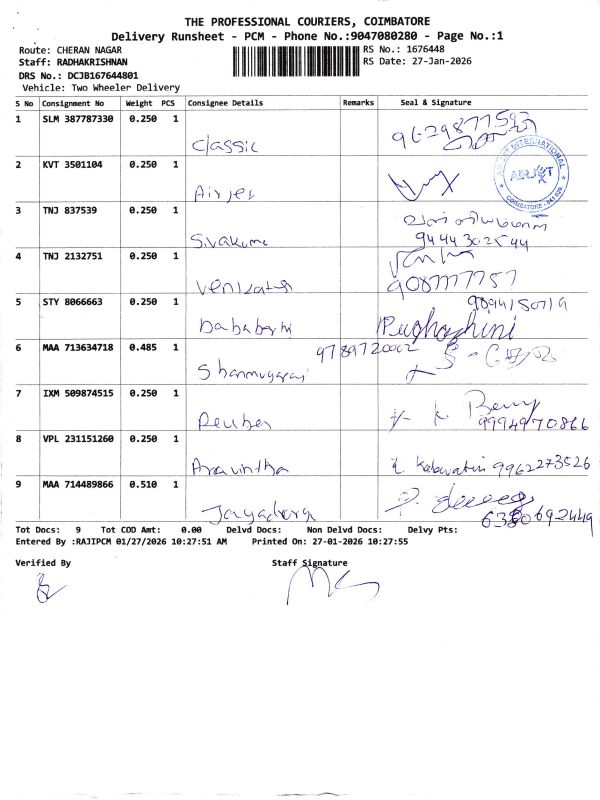 THE PROFESSIONAL COURIERS, COIMBATORE
Delivery Runsheet - PCM - Phone No.:9047080280 - Page No.:1
Route: CHERAN NAGAR
RS No.: 1676448
Staff: RADHAKRISHNAN
RS Date: 27-Jan-2026
DRS No.: DCJB167644801
Vehicle: Two Wheeler Delivery
S No Consignment No Weight PCS Consignee Details Remarks Seal & Signature
1 SLM 387787330 0.250 1 Classic
2 KVT 3501104 0.250 1
AIRJET INTERNATIONAL
AIRJET
COIMBATORE
3 TNJ 837539 0.250 1 Sivakumi
9444302544
4 TNJ 2132751 0.250 1 Venkatesh
9087777757
5 STY 8066663 0.250 1
9894150719
Pughazhini
6 MAA 713634718 0.485 1 Shanmugaraj 9789720002
7 IXM 509874515 0.250 1 Reuben
9994970866
8 VPL 231151260 0.250 1 Aravintha 9962273526
9 MAA 714489866 0.510 1
6380692449
Tot Docs: 9 Tot COD Amt: 0.00 Delvd Docs: Non Delvd Docs: Delvy Pts:
Entered By :RAJIPCM 01/27/2026 10:27:51 AM Printed On: 27-01-2026 10:27:55
Verified By Staff Signature